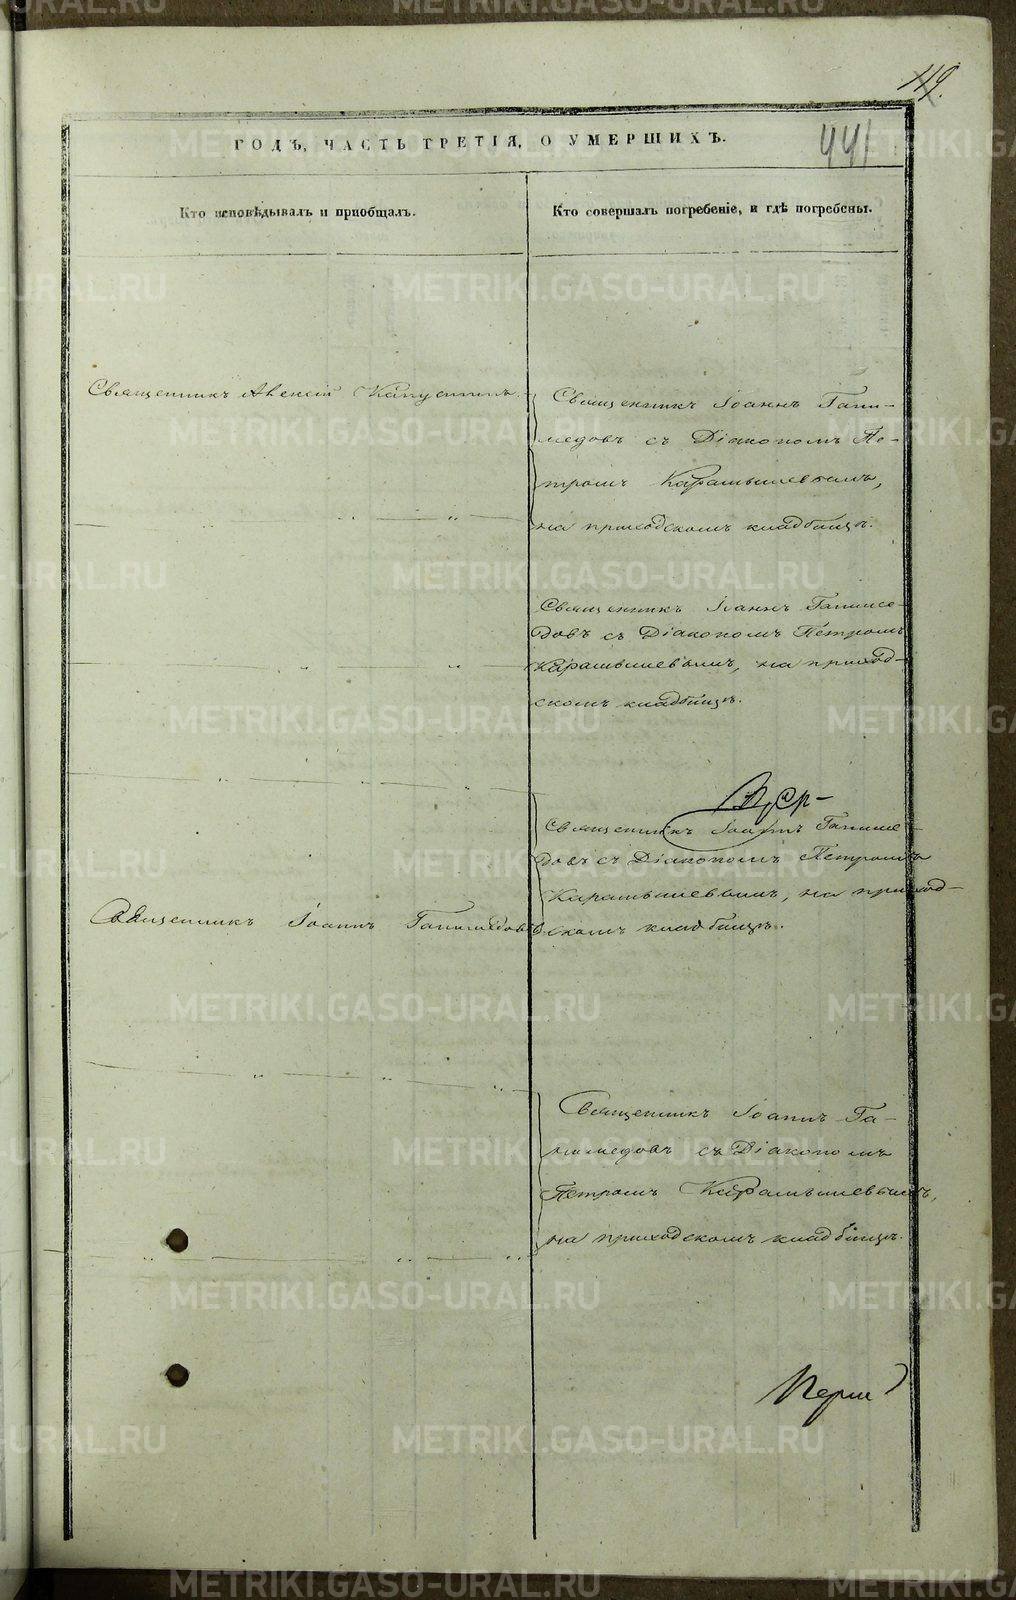 119.
441
ГОДЪ, ЧАСТЬ ТРЕТІЯ, О УМЕРШИХЪ.
Кто исповѣдывалъ и пріобщалъ.
Кто совершалъ погребеніе, и гдѣ погребены.
Священникъ Алексій Капустинъ.
Священникъ Іоаннъ Гани-
медовъ съ Діакономъ Пе-
тромъ Карамышевымъ,
на приходскомъ кладбищѣ.
Священникъ Іоаннъ Ганиме-
довъ съ Діакономъ Петромъ
Карамышевымъ, на приход-
скомъ кладбищѣ.
Священникъ Іоаннъ Ганиме-
довъ съ Діакономъ Петромъ
Карамышевымъ, на приход-
скомъ кладбищѣ.
Священникъ Іоаннъ Ганимедовъ
Священникъ Іоаннъ Га-
нимедовъ съ Діакономъ
Петромъ Карамышевымъ,
на приходскомъ кладбищѣ.
METRIKI.GASO-URAL.RU